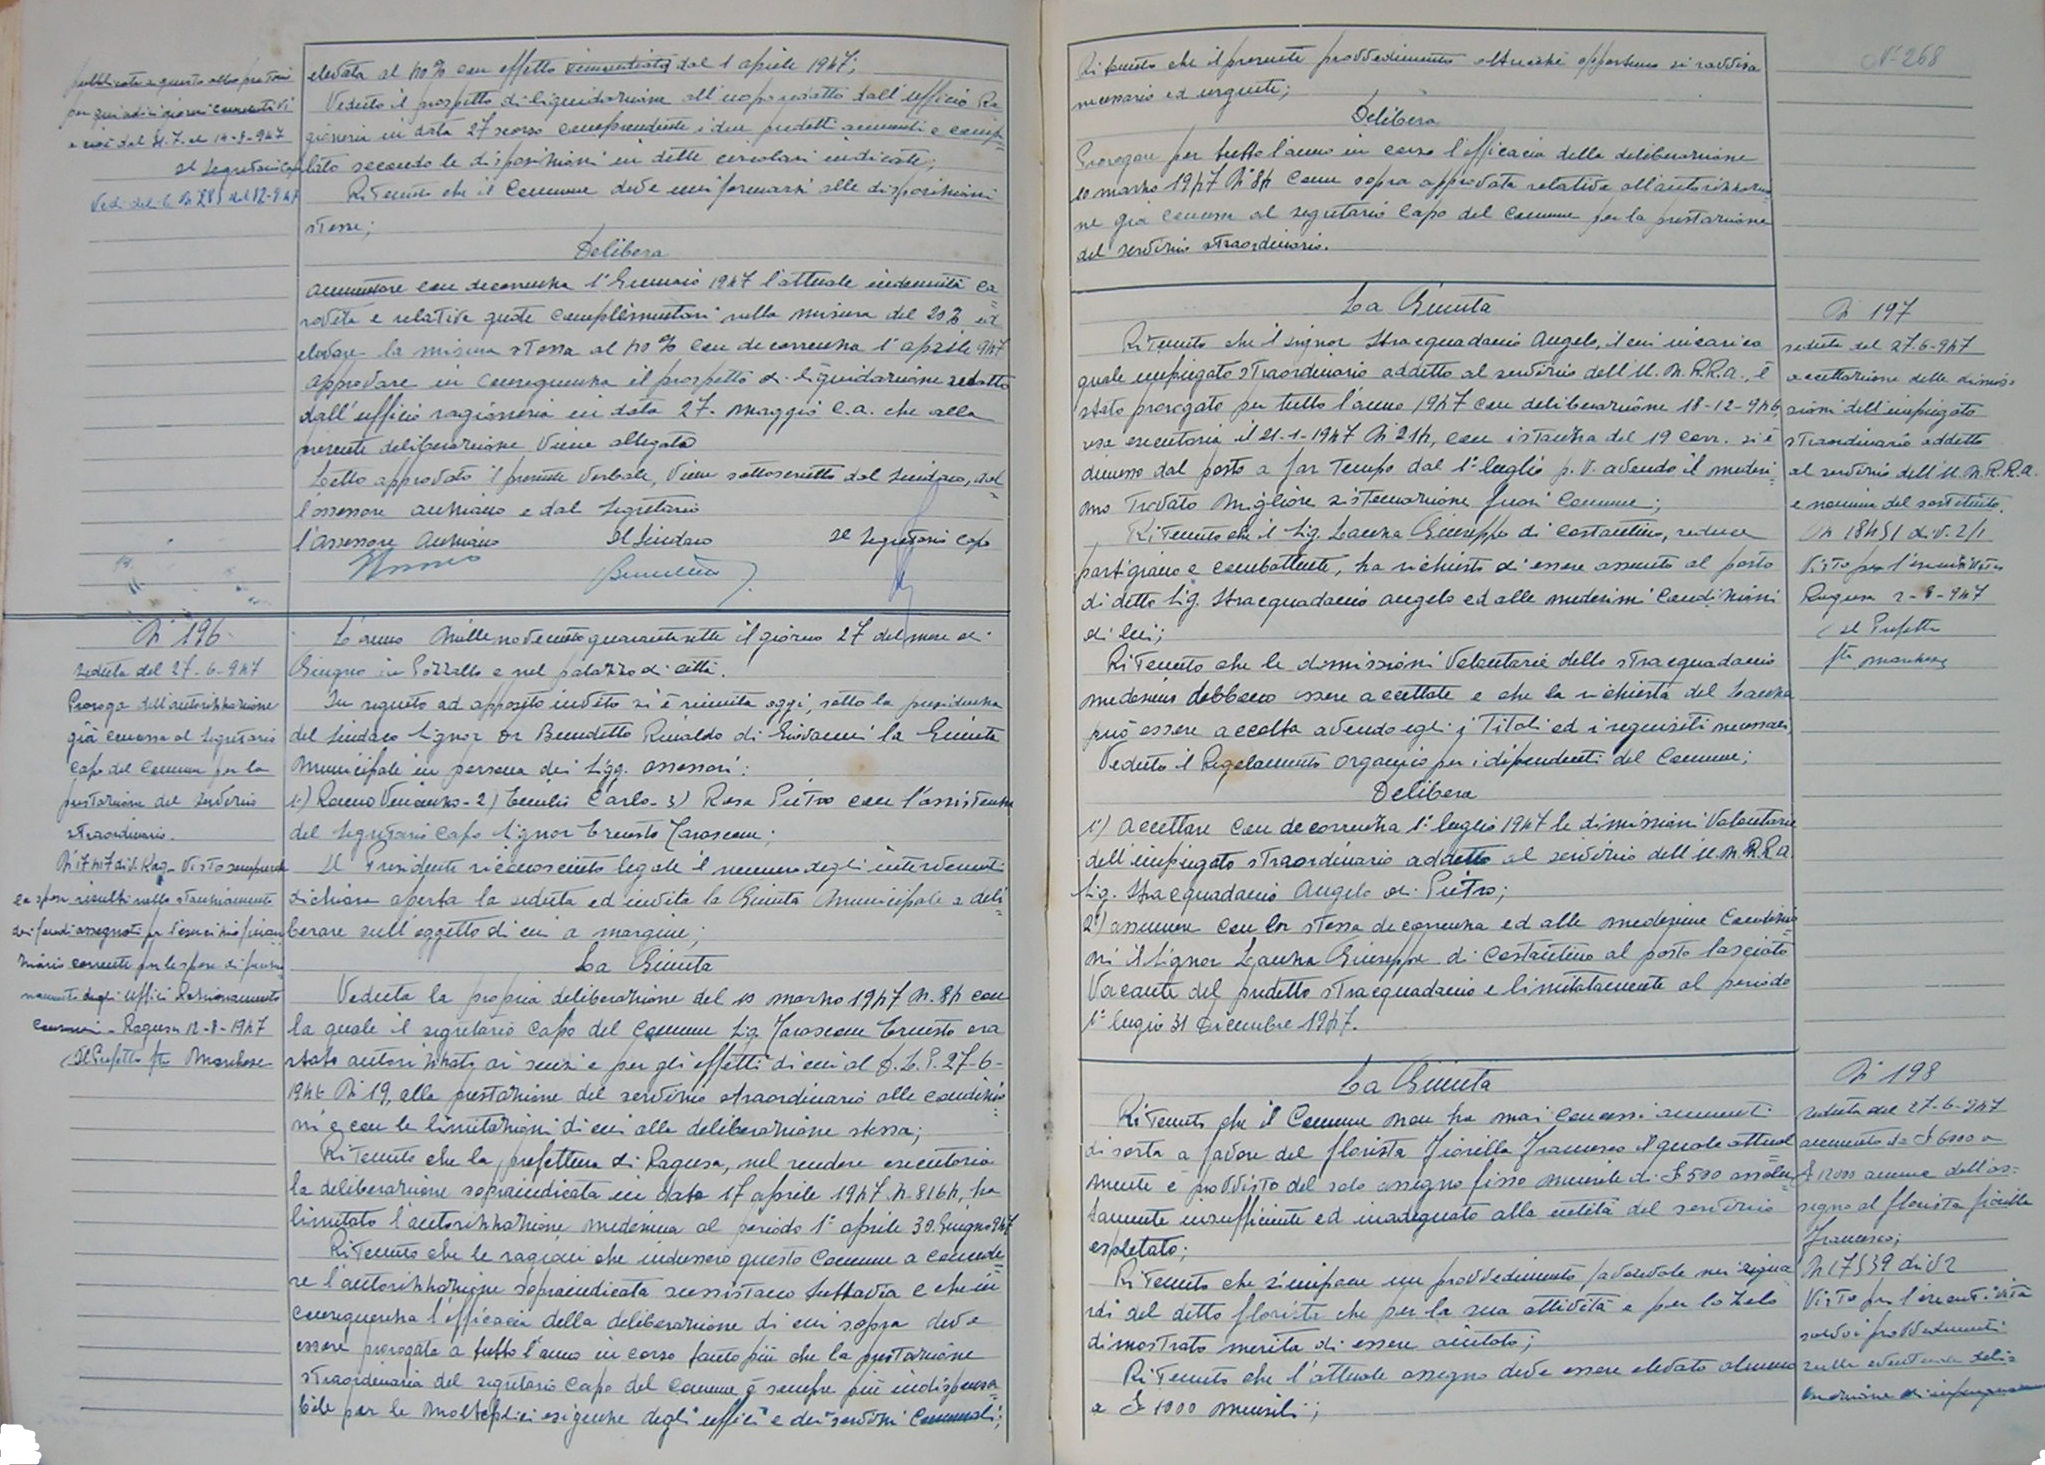 pubblicata a questo albo pretorio
per quindici giorni consecutivi
e cioè dal 31.7. al 14-8-947
Il Segretario Capo
Vedi del. C. N 285 del 12-947
elevata al 40% con effetto dal 1 aprile 1947;
Veduto il prospetto di liquidazione all'uopo redatto dall'ufficio Ra=
gioneria in data 27 scorso comprendente i due predetti aumenti e compi=
lato secondo le disposizioni in dette circolari indicate;
Ritenuto che il Comune deve uniformarsi alle disposizioni
stesse;
Delibera
aumentare con decorrenza 1° Gennaio 1947 l'attuale indennità ca=
rovita e relative quote complementari nella misura del 20% ed
elevare la misura stessa al 40% con decorrenza 1° aprile 947
approvare in conseguenza il prospetto di liquidazione redatto
dall'ufficio ragioneria in data 27. maggio c.a. che alla
presente deliberazione viene allegato
Letto approvato il presente verbale, viene sottoscritto dal Sindaco, dal=
l'assessore anziano e dal Segretario
l'Assessore Anziano Il Sindaco Il Segretario Capo
N 196
seduta del 27-6-947
Proroga dell'autorizzazione
già concessa al Segretario
Capo del Comune per la
prestazione del servizio
straordinario.
N 17417 div. Rag. Visto sempreché
la spesa risulti nello stanziamento
dei fondi assegnati per l'esercizio finan
ziario corrente per le spese di funzio
namento degli uffici
Comunali - Ragusa 12-8-1947
Il Prefetto fto Marchese
L'anno Millenovecentoquarantasette il giorno 27 del mese di
Giugno in Pozzallo e nel palazzo di città.
In seguito ad apposito invito si è riunita oggi, sotto la presidenza
del Sindaco Signor Dr Benedetto Rinaldo di Giovanni la Giunta
Municipale in persona dei Sigg. assessori:
1°) Rauno Venanzo - 2) Emilio Carlo - 3) Rosa Pietro con l'assistenza
del Segretario Capo Signor Ernesto Tarascone;
Il Presidente riconosciuto legale il numero degli intervenuti
dichiara aperta la seduta ed invita la Giunta Municipale a deli=
berare sull'oggetto di cui a margine;
La Giunta
Veduta la propria deliberazione del 10 marzo 1947 N. 84 con
la quale il segretario Capo del Comune Sig. Tarascone Ernesto era
stato autorizzato, ai sensi e per gli effetti di cui al D.L.P. 27-6-
1946 N 19, alla prestazione del servizio straordinario alle condizio=
ni e con le limitazioni di cui alla deliberazione stessa;
Ritenuto che la prefettura di Ragusa, nel rendere esecutoria
la deliberazione sopraindicata in data 17 aprile 1947 N. 8164, ha
limitato l'autorizzazione medesima al periodo 1° aprile 30 Giugno 947
Ritenuto che le ragioni che indussero questo Comune a concede=
re l'autorizzazione sopraindicata sussistano tuttavia e che in
conseguenza l'efficacia della deliberazione di cui sopra deve
essere prorogata a tutto l'anno in corso tanto più che la prestazione
straordinaria del segretario Capo del Comune è sempre più indispensa=
bile per le molteplici esigenze degli uffici e dei servizi Comunali;
N° 268
Ritenuto che il presente provvedimento oltreché opportuno si ravvisa
necessario ed urgente;
Delibera
Prorogare per tutto l'anno in corso l'efficacia della deliberazione
10 marzo 1947 N 84 come sopra approvata relativa all'autorizzazio=
ne già concessa al segretario Capo del Comune per la prestazione
del servizio straordinario.
La Giunta
Ritenuto che il signor Stracquadanio Angelo, il cui incarico
quale impiegato straordinario addetto al servizio dell'U.N.R.R.A., è
stato prorogato per tutto l'anno 1947 con deliberazione 18-12-946,
resa esecutoria il 21-1-1947 N 214, con istanza del 19 corr. si è
dimesso dal posto a far tempo dal 1° luglio p.v. avendo il medesi=
mo trovato migliore sistemazione fuori Comune;
Ritenuto che il Sig. Zacna Giuseppe di Costantino, reduce
partigiano e combattente, ha richiesto di essere assunto al posto
di detto Sig. Stracquadanio Angelo ed alle medesime Condizioni
di lui;
Ritenuto che le dimissioni volontarie dello Stracquadanio
medesimo debbano essere accettate e che la richiesta del
può essere accolta avendo egli i titoli ed i requisiti necessari
Veduto il Regolamento organico per i dipendenti del Comune;
Delibera
1°) Accettare con decorrenza 1° luglio 1947 le dimissioni volontarie
dell'impiegato straordinario addetto al servizio dell'U.N.R.R.A.
Sig. Stracquadanio Angelo di Pietro;
2°) assumere con la stessa decorrenza ed alle medesime Condizio=
ni il Signor Giuseppe di Costantino al posto lasciato
vacante del predetto Stracquadanio e limitatamente al periodo
1° luglio 31 Dicembre 1947.
N 197
seduta del 27-6-947
accettazione delle dimis=
sioni dell'impiegato
straordinario addetto
al servizio dell'U.N.R.R.A.
e nomina del sostituto.
N 18451 div. 2/1
Visto per l'esecutività
Ragusa 2-8-947
Il Prefetto
fto Marchese
La Giunta
Ritenuto che il Comune non ha mai concessi aumenti
di sorta a favore del fiorista Fiorella Francesco il quale attual=
mente è provvisto del solo assegno fisso mensile di £ 500 assolu=
tamente insufficiente ed inadeguato alla entità del servizio
espletato;
Ritenuto che s'impone un provvedimento favorevole nei rigua=
rdi del detto fiorista che per la sua attività e per lo zelo
dimostrato merita di essere aiutato;
Ritenuto che l'attuale assegno deve essere elevato almeno
a £ 1000 mensili;
N 198
seduta del 27-6-947
aumento da £ 6000 a
£ 12000 annue dell'as=
segno al fiorista Fiorella
Francesco;
N 17539 div 2
Visto per l'esecutività
salvo i provvedimenti
sulla eventuale